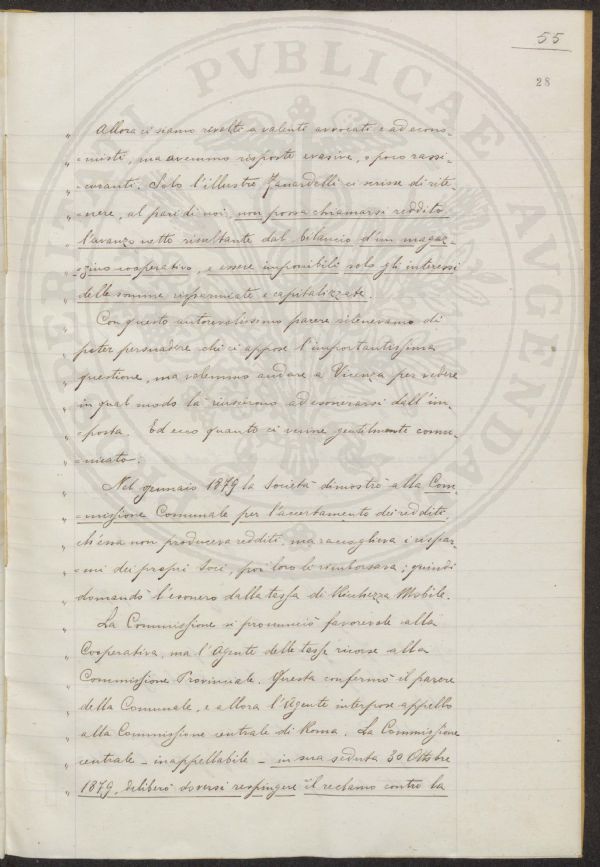 55
28
PVBLICAE
AVGENDA
" Allora ci siamo rivolti a valenti avvocati e ad econo-
" -misti, ma avemmo risposte evasive, o poco rassi-
" -curanti. Solo l'illustre Zanardelli ci scrisse di rite-
" -nere, al pari di noi, non possa chiamarsi reddito
" l'avanzo netto risultante dal bilancio d'un magaz-
" -zino cooperativo, e essere imponibili solo gli interessi
" delle somme risparmiate e capitalizzate.
" Con questo autorevolissimo parere ritenevamo di
" poter persuadere chi ci appose l'importantissima
" questione, ma volemmo andare a Vicenza per vedere
" in qual modo là riuscirono ad esonerarsi dall'im-
" -posta. Ed ecco quanto ci venne gentilmente comu-
" -nicato.
" Nel gennaio 1879 la Società dimostrò alla Com-
" -missione Comunale per l'accertamento dei redditi,
" ch'essa non produceva redditi, ma raccoglieva i rispar-
" -mi dei propri Soci, poi loro li rimborsava; quindi
" domandò l'esonero dalla tassa di Ricchezza Mobile.
" La Commissione si pronunciò favorevole alla
" Cooperativa, ma l'Agente delle tasse ricorse alla
" Commissione Provinciale. Questa confermò il parere
" della Comunale, e allora l'Agente interpose appello
" alla Commissione centrale di Roma. La Commissione
" centrale - inappellabile - in sua seduta 30 Ottobre
" 1879, deliberò doversi respingere il reclamo contro la